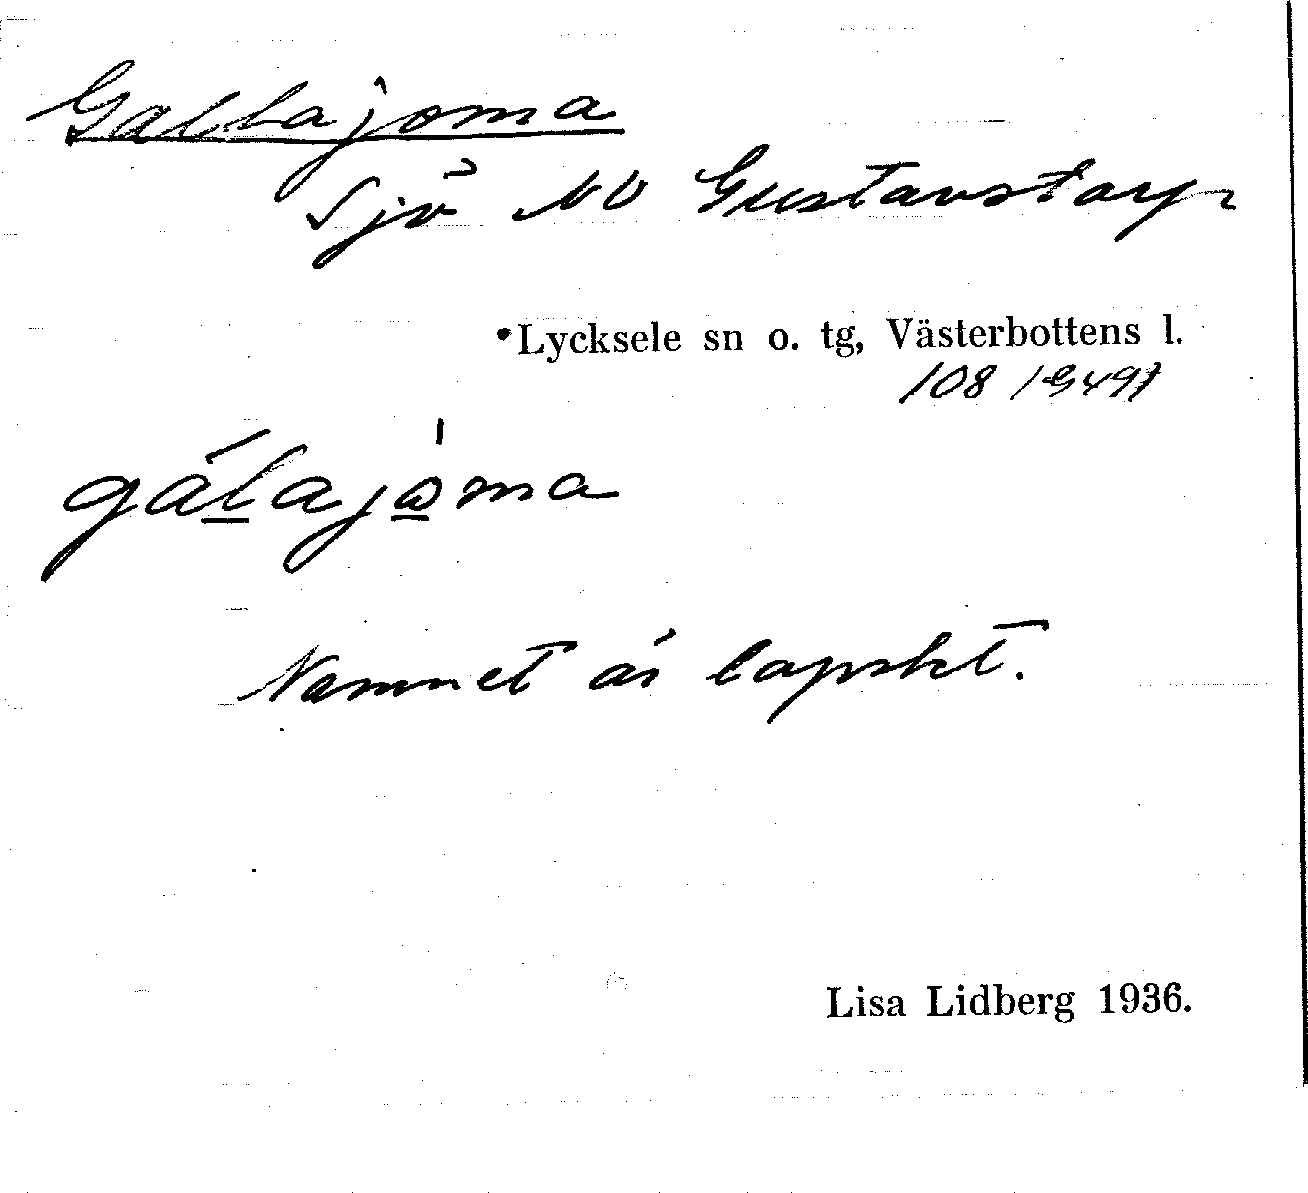 Gallajoma
Sjö NV Gustavstorp
•Lycksele sn o. tg, Västerbottens l.
108
gálajoma
Namnet är lapskt.
Lisa Lidberg 1936.